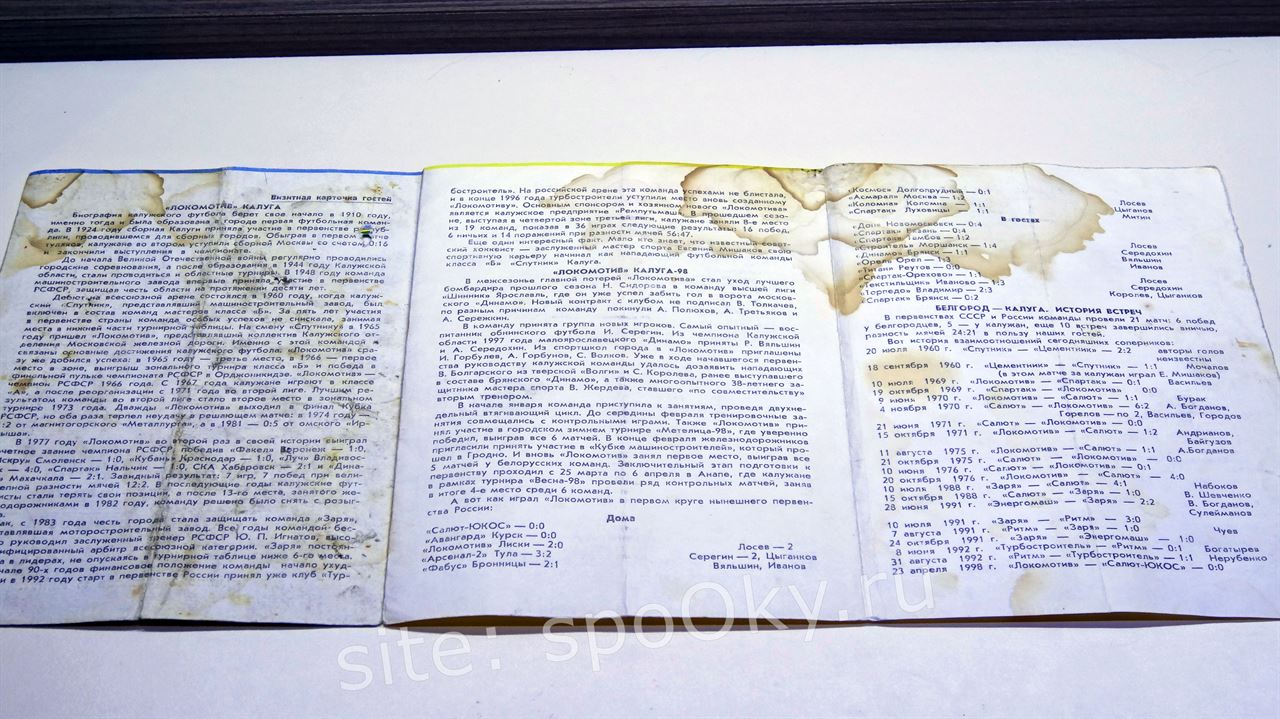 Визитная карточка гостей
«ЛОКОМОТИВ» КАЛУГА
Биография калужского футбола берет свое начало в 1910 году,
именно тогда и была образована в городе первая футбольная коман-
да. В 1924 году сборная Калуги приняла участие в первенстве
проводившемся для сборных городов. Обыграв в первом
туляков, калужане во втором уступили сборной Москвы со счетом 0:16
и закончили выступления в чемпионате.
До начала Великой Отечественной войны регулярно проводились
городские соревнования, а после образования в 1944 году Калужской
области, стали проводиться и областные турниры. В 1948 году команда
машиностроительного завода впервые приняла участие в первенстве
РСФСР, защищая честь области на протяжении десяти лет.
Дебют на всесоюзной арене состоялся в 1960 году, когда калуж-
ский «Спутник», представлявший машиностроительный завод, был
включен в состав команд мастеров класса «Б». За пять лет участия
в первенстве страны команда особых успехов не снискала, занимая
места в нижней части турнирной таблицы. На смену «Спутнику» в 1965
году пришел «Локомотив», представлявший коллектив Калужского от-
деления Московской железной дороги. Именно с этой командой
связаны основные достижения калужского футбола. «Локомотив» сра-
зу же добился успеха: в 1965 году — третье место, в 1966 — первое
место в зоне, выигрыш зонального турнира класса «Б» и победа в
финальной пульке чемпионата РСФСР в Орджоникидзе. «Локомотив» —
чемпион РСФСР 1966 года. С 1967 года калужане играют в классе
«А», а после реорганизации с 1971 года во второй лиге. Лучшим ре-
зультатом команды во второй лиге стало второе место в зональном
турнире 1973 года. Дважды «Локомотив» выходил в финал Кубка
РСФСР, но оба раза терпел неудачу в решающем матче: в 1974 году —
:2 от магнитогорского «Металлурга», а в 1981 — 0:5 от омского «Ир-
тыша».
В 1977 году «Локомотив» во второй раз в своей истории выиграл
четное звание чемпиона РСФСР победив «Факел» Воронеж — 1:0,
Искру» Смоленск — 1:0, «Кубань» Краснодар — 1:0, «Луч» Владивос-
— 4:0, «Спартак» Нальчик — 4:0, СКА Хабаровск — 2:1 и «Дина-
Махачкала — 2:1. Завидный результат: 7 игр, 7 побед при вели-
ной разности мячей 12:2. В последующие годы калужские фут-
исты стали терять свои позиции, а после 13-го места, занятого же-
нодорожниками в 1982 году, команду решено было снять с розыг-
ак, с 1983 года честь города стала защищать команда «Заря»,
тавлявшая моторостроительный завод. Все годы командой бес-
о руководил заслуженный тренер РСФСР Ю. П. Игнатов, высо-
ифицированный арбитр всесоюзной категории. «Заря» постоян-
а в лидерах, не опускаясь в турнирной таблице ниже 6-го места.
чале 90-х годов финансовое положение команды начало ухуд-
и в 1992 году старт в первенстве России принял уже клуб «Тур-
бостроитель». На российской арене эта команда успехами не блистала,
и в конце 1996 года турбостроители уступили место вновь созданному
«Локомотиву». Основным спонсором и хозяином нового «Локомотива»
является калужское предприятие «Ремпутьмаш». В прошедшем сезо-
не, выступая в четвертой зоне третьей лиги, калужане заняли 8-е место
из 19 команд, показав в 36 играх следующие результаты: 16 побед,
6 ничьих и 14 поражений при разности мячей 56:47.
Еще один интересный факт. Мало кто знает, что известный совет-
ский хоккеист — заслуженный мастер спорта Евгений Мишаков свою
спортивную карьеру начинал как нападающий футбольной команды
класса «Б» «Спутник» Калуга.
«ЛОКОМОТИВ» КАЛУГА-98
В межсезонье главной потерей «Локомотива» стал уход лучшего
бомбардира прошлого сезона Н. Сидорова в команду высшей лиги
«Шинник» Ярославль, где он уже успел забить гол в ворота москов-
ского «Динамо». Новый контракт с клубом не подписал В. Толкачев,
по разным причинам команду покинули А. Полюхов, А. Третьяков и
А. Сережкин.
В команду принята группа новых игроков. Самый опытный — вос-
питанник обнинского футбола И. Серегин. Из чемпиона Калужской
области 1997 года малоярославецкого «Динамо» приняты Р. Вяльшин
и А. Середохин. Из спортшкол города в «Локомотив» приглашены
И. Горбулев, А. Горбунов, С. Волков. Уже в ходе начавшегося первен-
ства руководству калужской команды удалось дозаявить нападающих
В. Болгарского из тверской «Волги» и С. Королева, ранее выступавшего
в составе брянского «Динамо», а также многоопытного 38-летнего за-
щитника мастера спорта В. Жердева, ставшего «по совместительству»
вторым тренером.
В начале января команда приступила к занятиям, проведя двухне-
дельный втягивающий цикл. До середины февраля тренировочные за-
нятия совмещались с контрольными играми. Также «Локомотив» при-
нял участие в городском зимнем турнире «Метелица-98», где уверенно
победил, выиграв все 6 матчей. В конце февраля железнодорожников
пригласили принять участие в «Кубке машиностроителей», который про-
шел в Гродно. И вновь «Локомотив» занял первое место, выиграв все
5 матчей у белорусских команд. Заключительный этап подготовки к
первенству проходил с 25 марта по 6 апреля в Анапе, где калужане
в рамках турнира «Весна-98» провели ряд контрольных матчей, заняв
в итоге 4-е место среди 6 команд.
А вот как играл «Локомотив» в первом круге нынешнего первен-
ства России:
Дома
«Салют-ЮКОС» — 0:0
«Авангард» Курск — 0:0
«Локомотив» Лиски — 2:0 Лосев — 2
«Арсенал-2» Тула — 3:2 Серегин — 2, Цыганков
«Фабус» Бронницы — 2:1 Вяльшин, Иванов
«Космос» Долгопрудный — 0:1
«Асмарал» Москва — 1:2 Лосев
«Коломна» Коломна — 1:1 Цыганов
«Спартак» Луховицы — 1:1 Митин
В гостях
«Дон» Новомосковск — 0:0
«Спартак» Рязань — 0:4
«Спартак» Тамбов — 1:
«Строитель» Моршанск — 1:4 Лосев
«Динамо» Брянск — 1:1 Середохин
«Орел» Орел — 1:3 Вяльшин
«Титан» Реутов — 0:0 Иванов
«Спартак-Орехово» — 1:1
«Текстильщик» Иваново — 1:3 Лосев
«Торпедо» Владимир — 2:3 Середохин
«Спартак» Брянск — 0:2 Королев, Цыганков
БЕЛГОРОД — КАЛУГА. ИСТОРИЯ ВСТРЕЧ
В первенствах СССР и России команды провели 21 матч: 6 побед
у белгородцев, 5 — у калужан, еще 10 встреч завершились вничью,
разность мячей 24:21 в пользу наших гостей.
Вот история взаимоотношений сегодняшних соперников:
20 июля 1960 г. «Спутник» — «Цементник» — 2:2 авторы голов
неизвестны
18 сентября 1960 г. «Цементник» — «Спутник» — 1:1 Мочалов
(в этом матче за калужан играл Е. Мишаков)
10 июля 1969 г. «Локомотив» — «Спартак» — 0:1 Васильев
19 октября 1969 г. «Спартак» — «Локомотив» — 0:0
9 июня 1970 г. «Локомотив» — «Салют» — 1:1 Бурак
4 ноября 1970 г. «Салют» — «Локомотив» — 6:2 А. Богданов,
Горелов — по 2, Васильев, Городов
21 июня 1971 г. «Салют» — «Локомотив» — 0:0
15 октября 1971 г. «Локомотив» — «Салют» — 1:2 Андрианов,
Байгузов
11 августа 1975 г. «Локомотив» — «Салют» — 1:1 А.Богданов
21 октября 1975 г. «Салют» — «Локомотив» — 0:0
10 июня 1976 г. «Салют» — «Локомотив» — 0:1
20 октября 1976 г. «Локомотив» — «Салют» — 4:0
10 июля 1988 г. «Заря» — «Салют» — 4:1 Набоков
15 октября 1988 г. «Салют» — «Заря» — 1:0 В. Шевченко
28 июня 1991 г. «Энергомаш» — «Заря» — 2:2 В. Богданов,
Сулейманов
10 июля 1991 г. «Заря» — «Ритм» — 3:0
7 августа 1991 г. «Ритм» — «Заря» — 1:0 Чуев
24 октября 1991 г. «Заря» — «Энергомаш» — 1:0
8 июня 1992 г. «Турбостроитель» — «Ритм» — 0:1 Богатырев
31 августа 1992 г. «Ритм» — «Турбостроитель» — 1:1 Нерубенко
23 апреля 1998 г. «Локомотив» — «Салют-ЮКОС» — 0:0
site: spoOky.ru